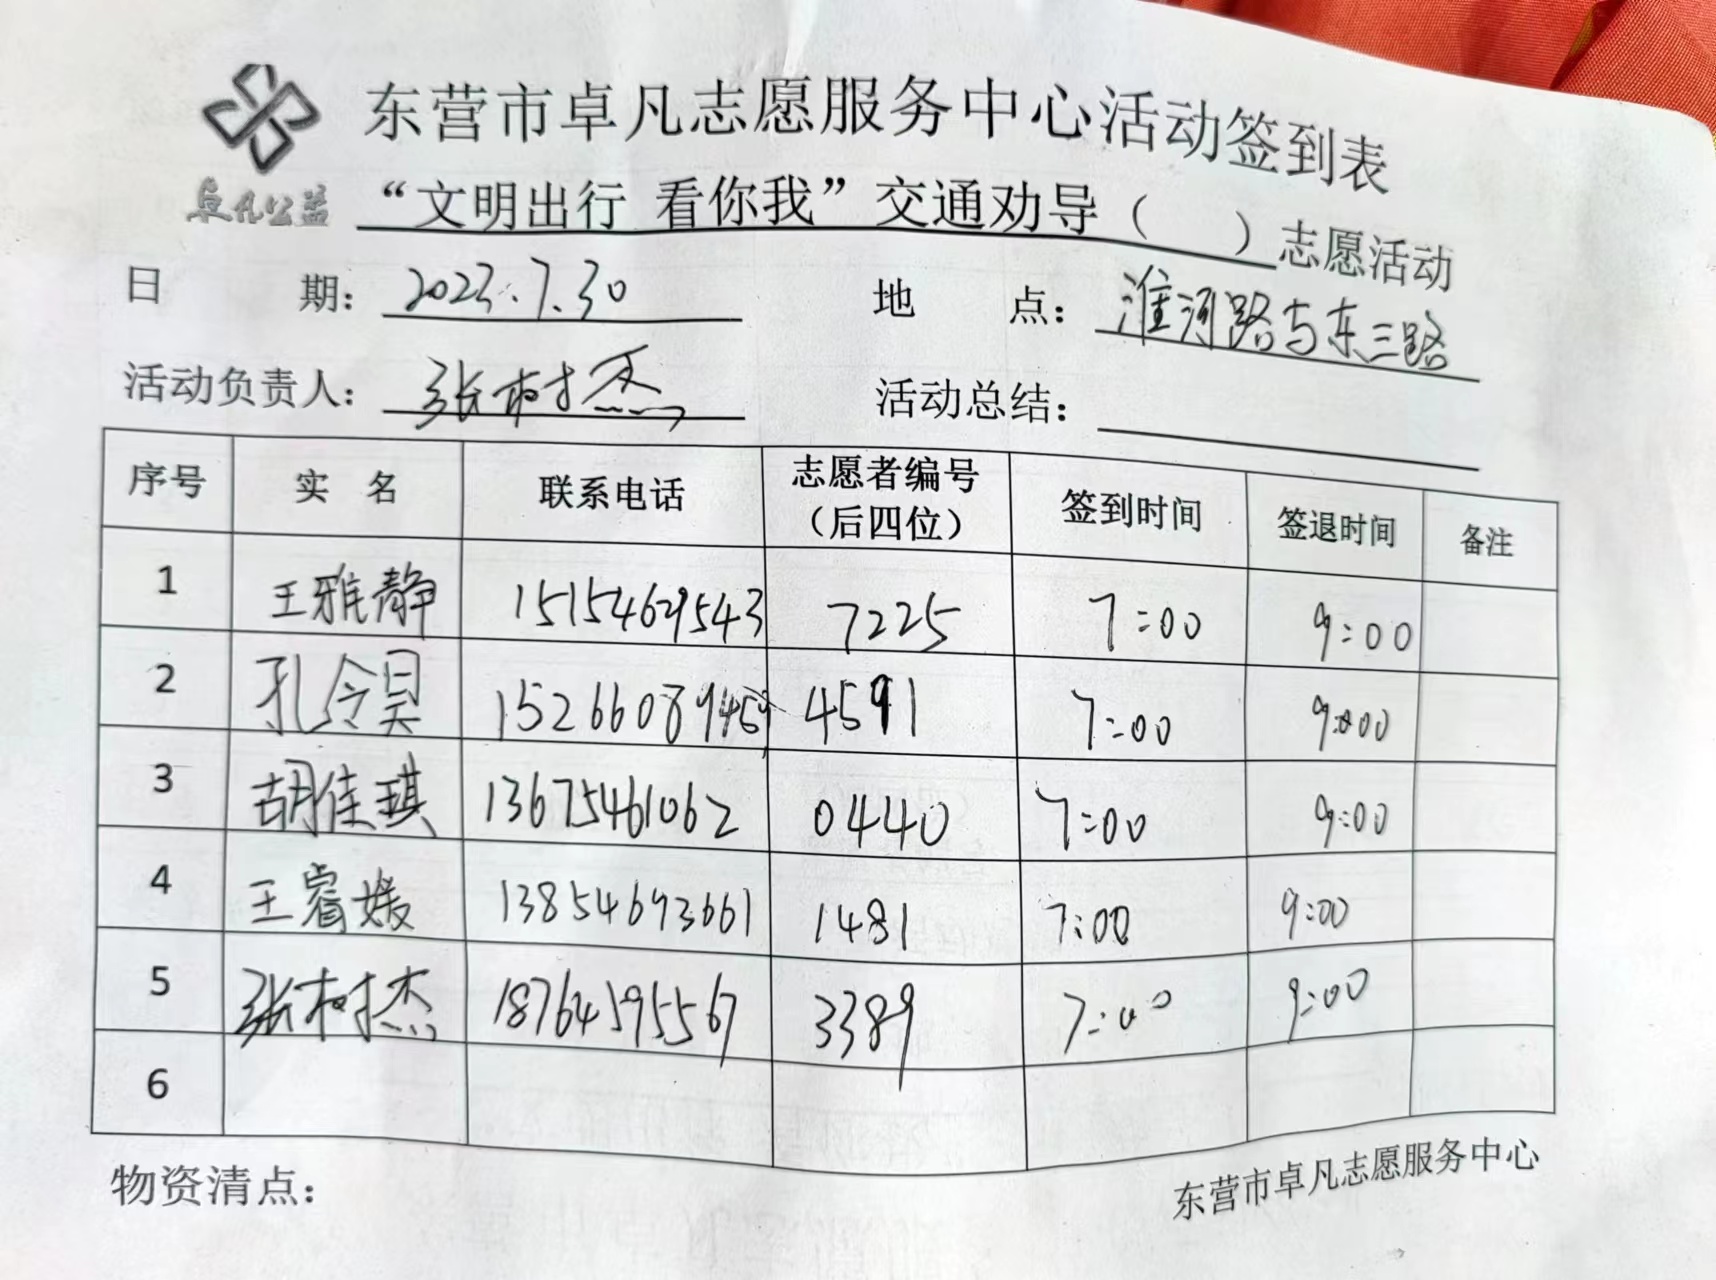 东营市卓凡志愿服务中心活动签到表
卓凡公益
“文明出行 看你我”交通劝导（ ）志愿活动
日 期： 2023.7.30 地 点： 淮河路与东三路
活动负责人： 张树杰 活动总结：
序号 实 名 联系电话 志愿者编号（后四位） 签到时间 签退时间 备注
1 王雅静 15154629543 7225 7:00 9:00
2 孔令昊 15266089459 4591 7:00 9:00
3 胡佳琪 13675461062 0440 7:00 9:00
4 王睿媛 13854693661 1481 7:00 9:00
5 张树杰 18764595567 3389 7:00 9:00
6
物资清点：
东营市卓凡志愿服务中心